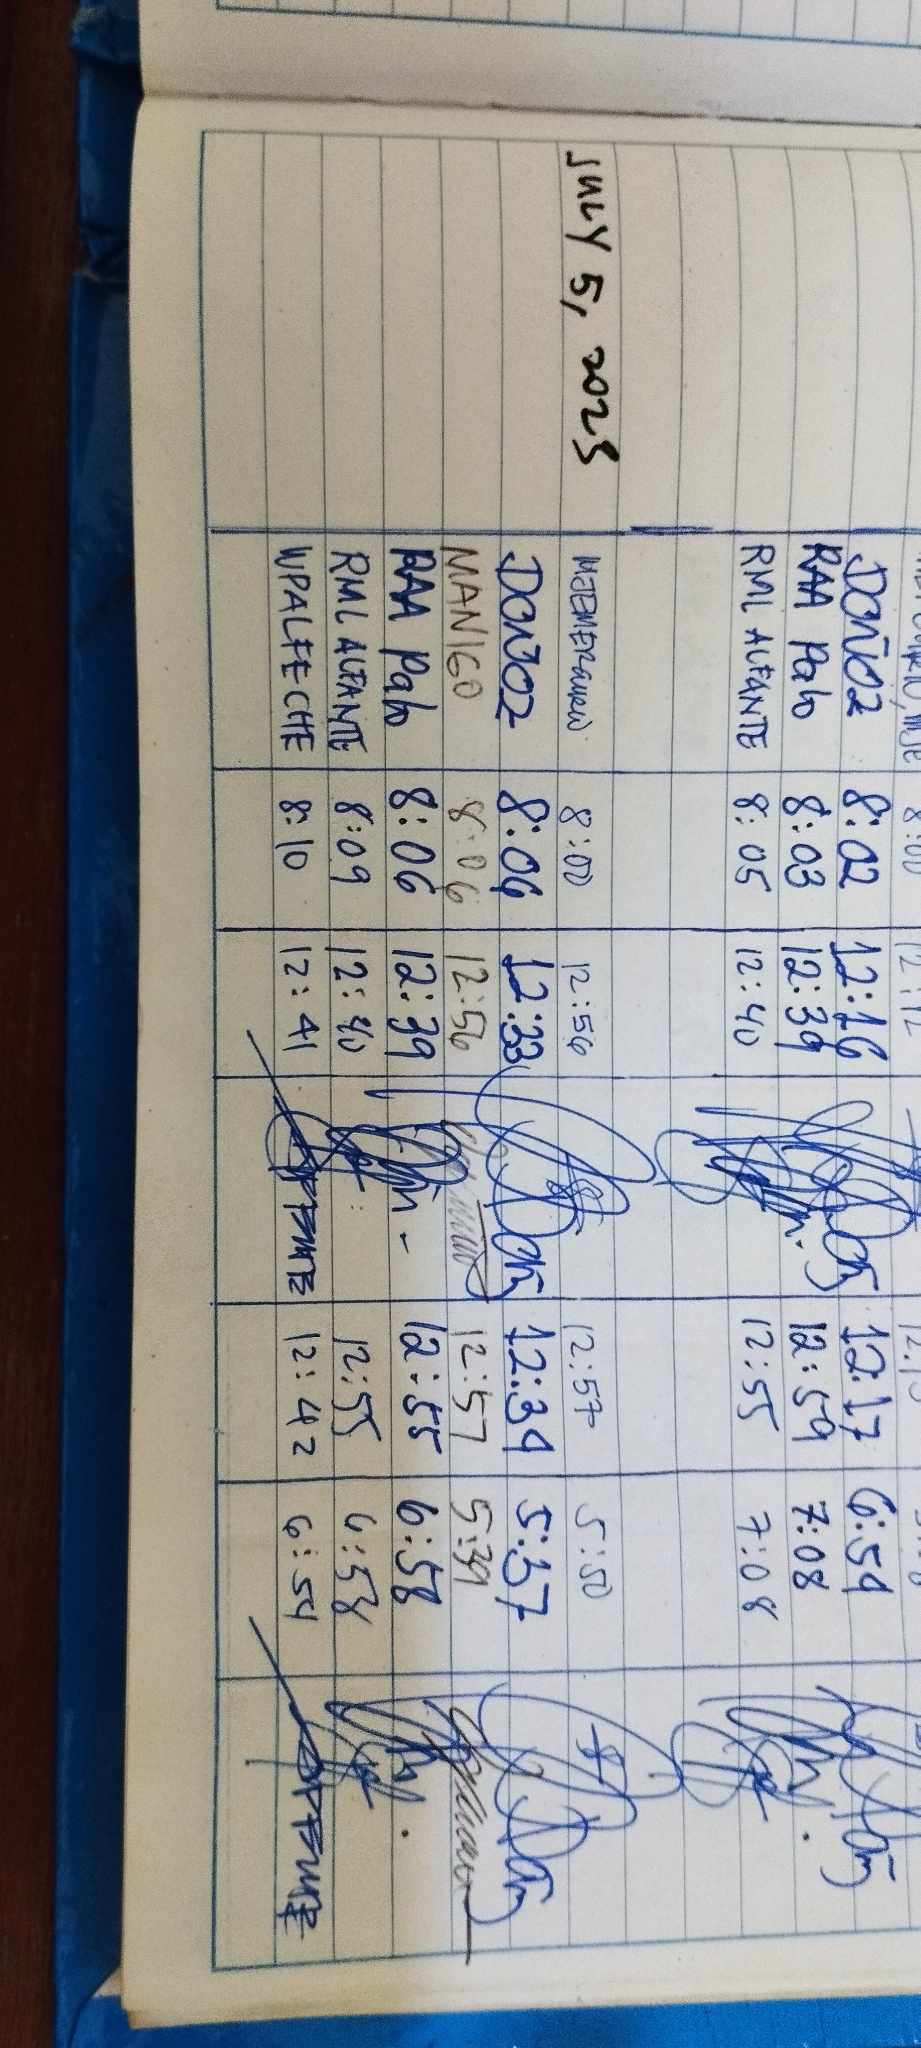 8:00 12:12
Doñoz 8:02 12:16 12:17 6:59
RAA Palo 8:03 12:39 12:59 7:08
RML ALFANTE 8:05 12:40 12:55 7:08
JULY 5, 2025 8:00 12:56 12:57 5:50
DOÑOZ 8:06 12:33 12:34 5:37
MANIGO 8:06 12:56 12:57 5:39
RAA Palo 8:06 12:39 12:55 6:58
RML ALFANTE 8:09 12:40 12:55 6:58
WPALFECHE 8:10 12:41 12:42 6:54